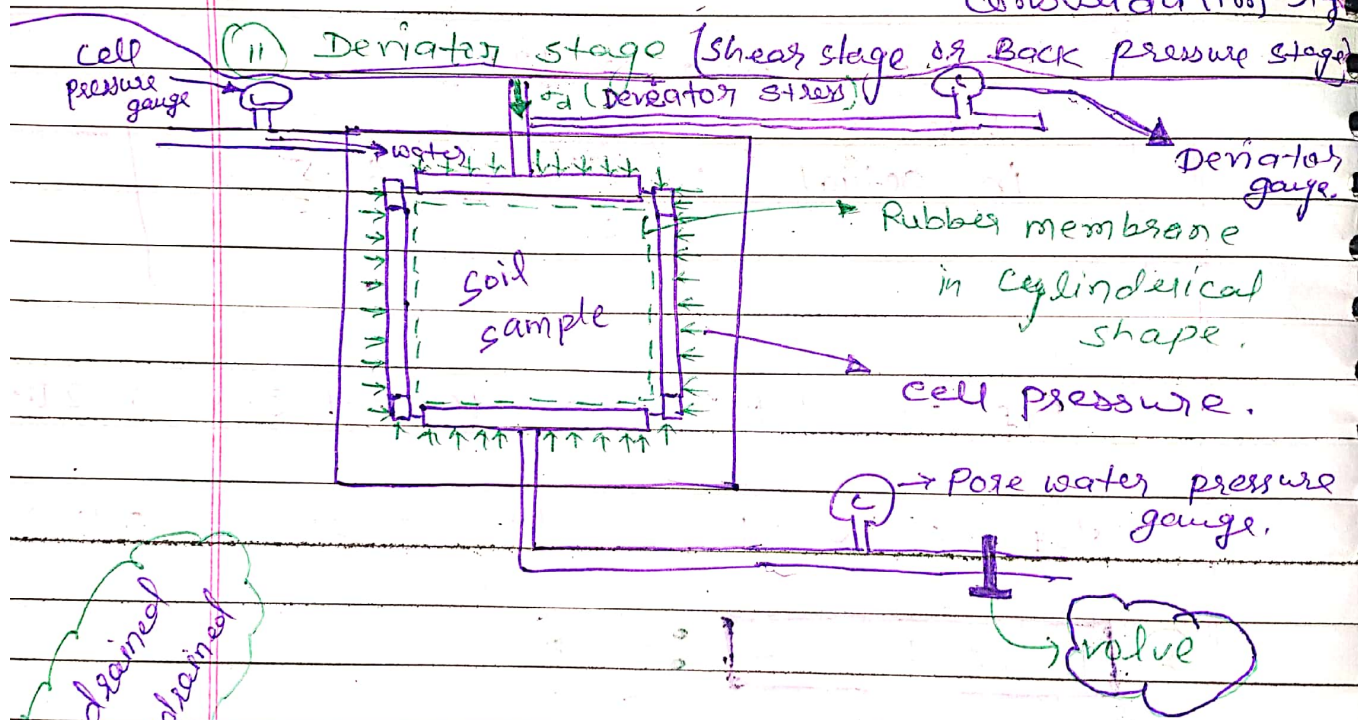 (ii) Deviator stage (shear stage or Back pressure stage)
cell
pressure
gauge
σd (Deviator stress)
Deviator
gauge.
water
Rubber membrane
in Cylinderical
shape.
soil
sample
cell pressure.
Pore water pressure
gauge.
valve
drained
drained